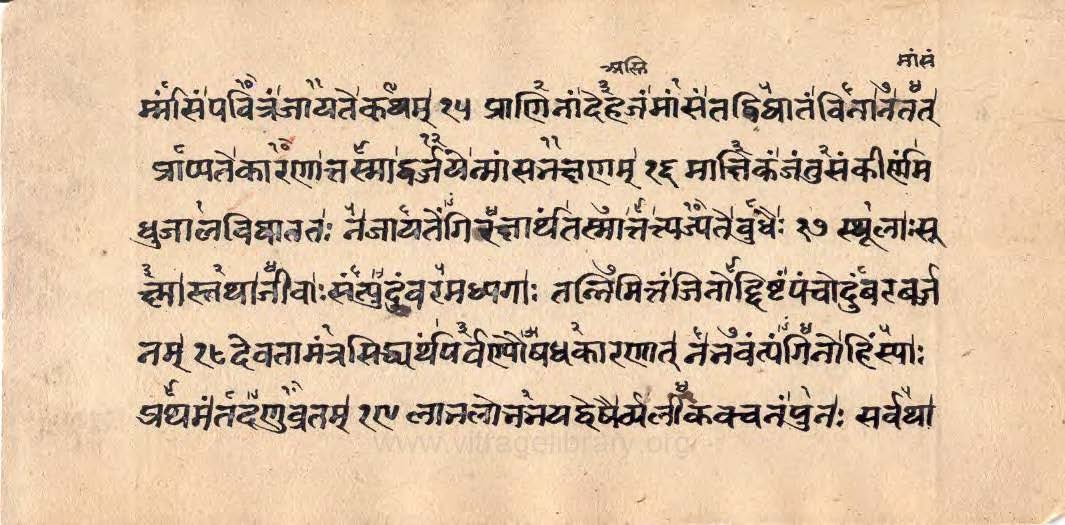 अस्ति मांसं
र्मांसं पवित्रं जायते कथम् १५ प्राणिनां देहजं मांसं तद्विघातं विना न तत्
प्राप्यते कारणात्तस्माद्वर्जयेन्मांसभक्षणम् १६ माक्षिकं जंतुसंकीर्णं म
धुजालविघाततः न जायतेंगिरक्षार्थं तस्मात्तत्त्यज्यते बुधैः १७ स्थूलाः सू
क्ष्मास्तथा जीवाः संत्युदुंबरमध्यगाः तन्निमित्तं जिनोद्दिष्टं पंचोदुंबरवर्ज
नम् १८ देवतामंत्रसिद्ध्यर्थं पर्वण्यौषधकारणात् न भवंत्यंगिनो हिंस्याः
प्रथमं तदणुव्रतम् १९ लाभलोभभयद्वेषैर्व्यलीकवचनं पुनः सर्वथा
www.vitragelibrary.org